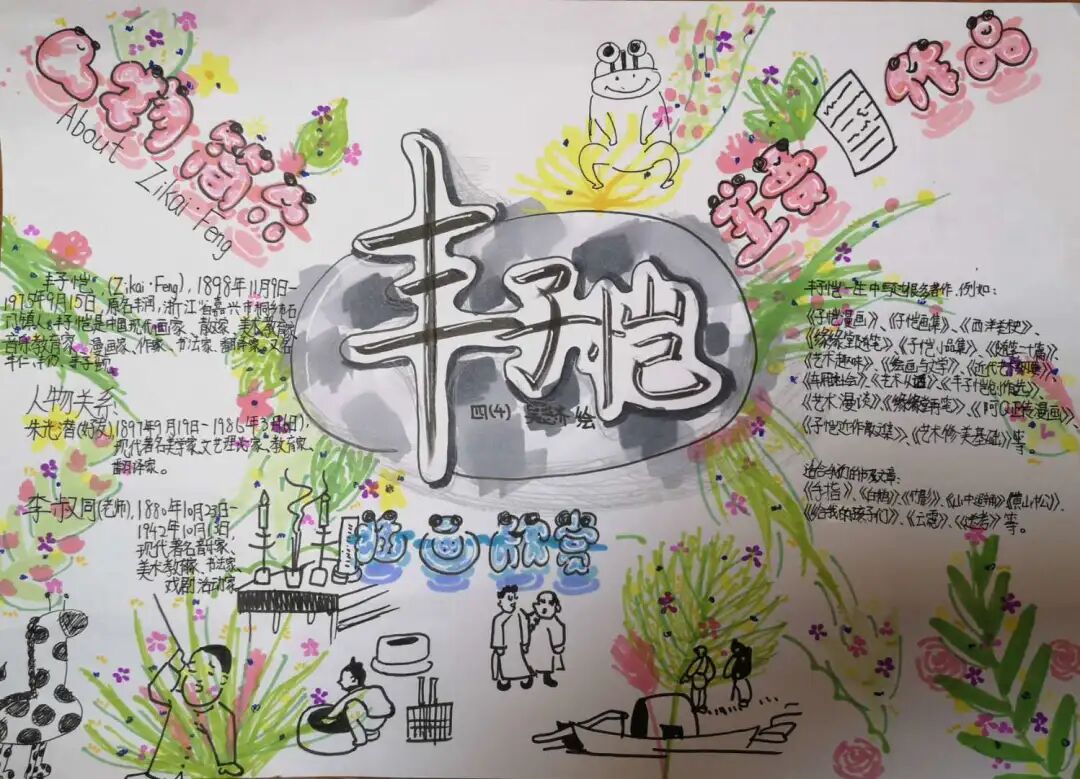 人物简介
About Zikai Feng
丰子恺
四(4) 绘
主要作品
丰子恺, (Zikai·Feng), 1898年11月9日-
1975年9月15日, 原名丰润, 浙江省嘉兴市桐乡市石
门镇人。丰子恺是中国现代画家、散文家、美术教育家、
音乐教育家、漫画家、作家、书法家、翻译家。又名
人物关系:
朱光潜(好友), 1897年9月19日-1986年3月6日,
现代著名美学家、文艺理论家、教育家、
翻译家。
李叔同(老师), 1880年10月23日-
1942年10月13日,
现代著名音乐家、
美术教育家、书法家、
戏剧活动家。
丰子恺一生中写过很多著作, 例如:
《子恺漫画》、《子恺画集》、《西洋美术史》、
《缘缘堂随笔》、《子恺小品集》、《随笔二十篇》、
《艺术趣味》、《绘画与文学》、《近代艺术纲要》、
《车厢社会》、《艺术丛话》、《丰子恺创作选》、
《艺术漫谈》、《缘缘堂再笔》、《阿Q正传漫画》、
《子恺近作散文集》、《艺术修养基础》等。
适合我们的书及文章:
《手指》、《白鹅》、《竹影》、《山中避雨》、《黄山松》、
《给我的孩子们》、《云霓》、等。
漫画欣赏